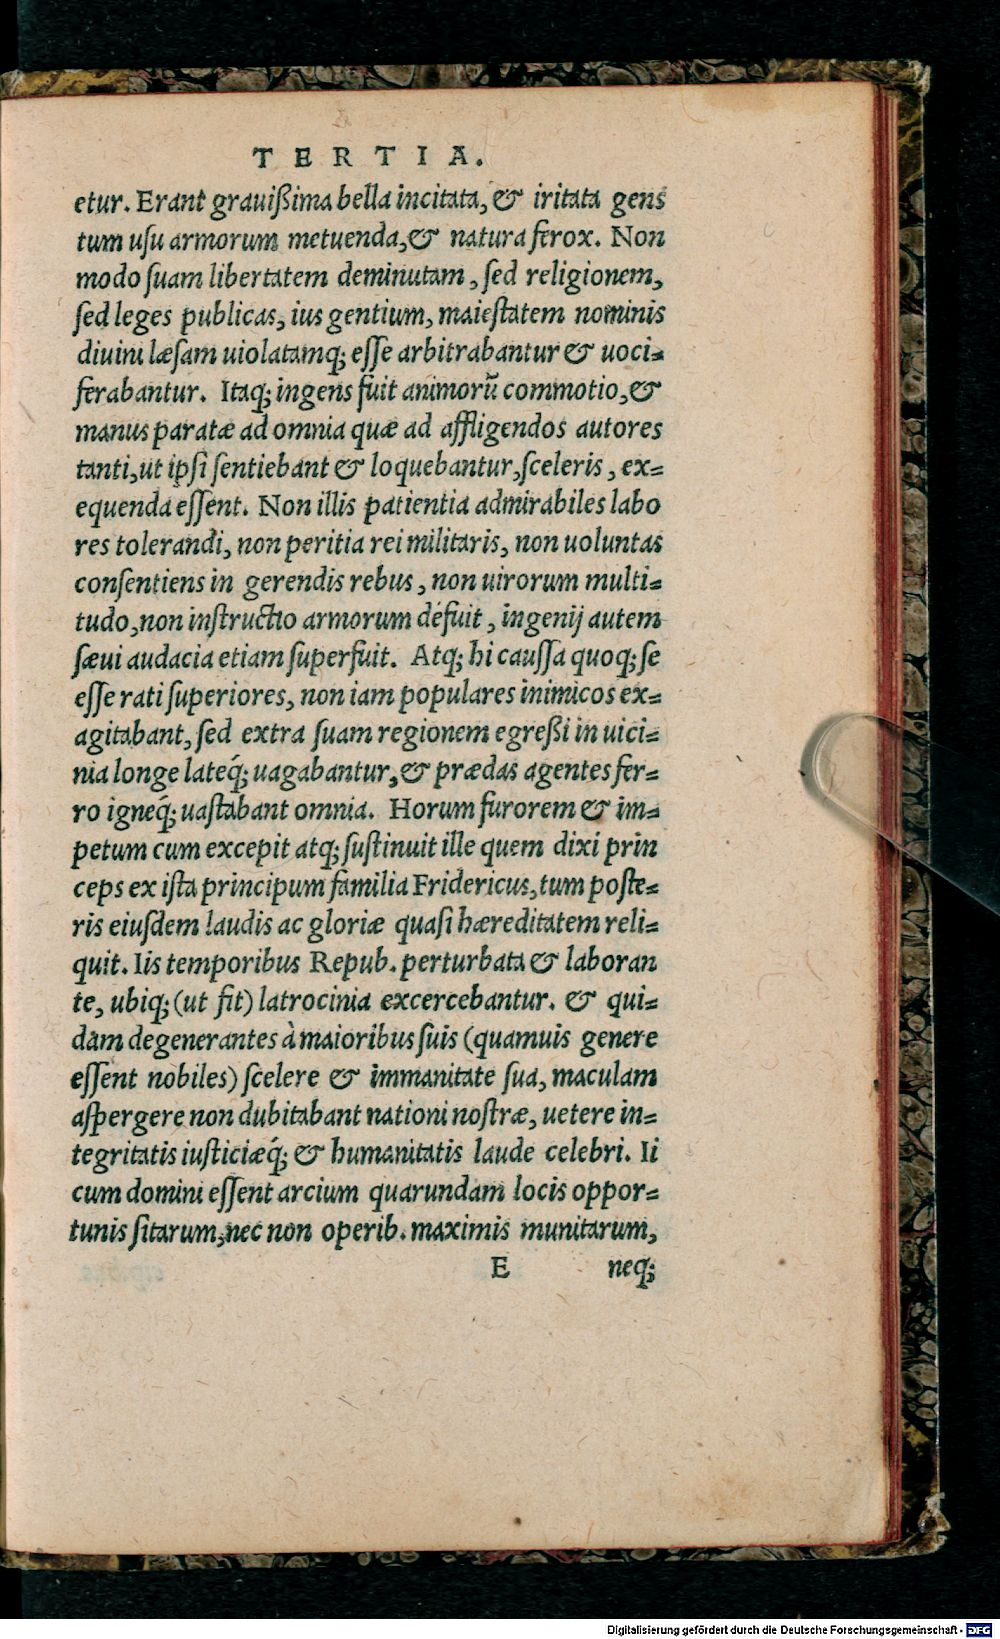 TERTIA.
etur. Erant grauißima bella incitata, & iritata gens
tum uſu armorum metuenda, & natura ferox. Non
modo ſuam libertatem deminutam, ſed religionem,
ſed leges publicas, ius gentium, maieſtatem nominis
diuini læſam uiolatamq; eſſe arbitrabantur & uoci=
ferabantur. Itaq; ingens fuit animorũ commotio, &
manus paratæ ad omnia quæ ad affligendos autores
tanti, ut ipſi ſentiebant & loquebantur, ſceleris, ex=
equenda eſſent. Non illis patientia admirabiles labo
res tolerandi, non peritia rei militaris, non uoluntas
conſentiens in gerendis rebus, non uirorum multi=
tudo, non inſtructio armorum défuit, ingenij autem
ſæui audacia etiam ſuperfuit. Atq; hi cauſſa quoq; ſe
eſſe rati ſuperiores, non iam populares inimicos ex=
agitabant, ſed extra ſuam regionem egreßi in uici=
nia longe lateq́; uagabantur, & prædas agentes fer=
ro igneq́; uaſtabant omnia. Horum furorem & im=
petum cum excepit atq; ſuſtinuit ille quem dixi prin
ceps ex iſta principum familia Fridericus, tum poſte=
ris eiuſdem laudis ac gloriæ quaſi hæreditatem reli=
quit. Iis temporibus Repub. perturbata & laboran
te, ubiq; (ut fit) latrocinia excercebantur. & qui=
dam degenerantes à maioribus ſuis (quamuis genere
eſſent nobiles) ſcelere & immanitate ſua, maculam
aſpergere non dubitabant nationi noſtræ, uetere in=
tegritatis iuſticiæq́; & humanitatis laude celebri. Ii
cum domini eſſent arcium quarundam locis oppor=
tunis ſitarum, nec non operib. maximis munitarum,
E neq;
Digitalisierung gefördert durch die Deutsche Forschungsgemeinschaft - DFG